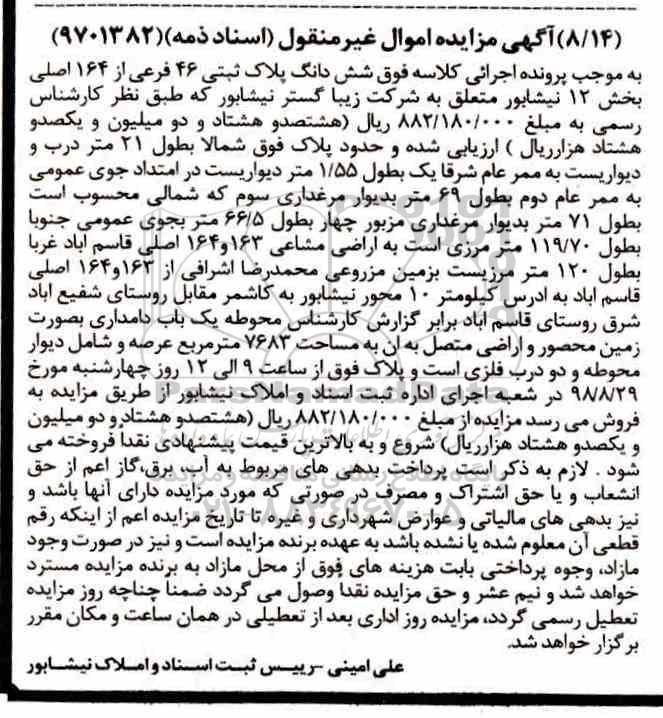 (۸/۱۴) آگهی مزایده اموال غیرمنقول (اسناد ذمه)(۹۷۰۱۳۸۲)
به موجب پرونده اجرائی کلاسه فوق شش دانگ پلاک ثبتی ۴۶ فرعی از ۱۶۴ اصلی
بخش ۱۲ نیشابور متعلق به شرکت زیبا گستر نیشابور که طبق نظر کارشناس
رسمی به مبلغ ۸۸۲/۱۸۰/۰۰۰ ریال (هشتصدو هشتاد و دو میلیون و یکصدو
هشتاد هزارریال ) ارزیابی شده و حدود پلاک فوق شمالا بطول ۲۱ متر درب و
دیواریست به ممر عام شرقا یک بطول ۱/۵۵ متر دیواریست در امتداد جوی عمومی
به ممر عام دوم بطول ۶۹ متر بدیوار مرغداری سوم که شمالی محسوب است
بطول ۷۱ متر بدیوار مرغداری مزبور چهار بطول ۶۶/۵ متر بجوی عمومی جنوبا
بطول ۱۱۹/۷۰ متر مرزی است به اراضی مشاعی ۱۶۳و۱۶۴ اصلی قاسم اباد غربا
بطول ۱۲۰ متر مرزیست بزمین مزروعی محمدرضا اشرافی از ۱۶۳و۱۶۴ اصلی
قاسم اباد به ادرس کیلومتر ۱۰ محور نیشابور به کاشمر مقابل روستای شفیع اباد
شرق روستای قاسم اباد برابر گزارش کارشناس محوطه یک باب دامداری بصورت
زمین محصور و اراضی متصل به ان به مساحت ۷۶۸۳ مترمربع عرصه و شامل دیوار
محوطه و دو درب فلزی است و پلاک فوق از ساعت ۹ الی ۱۲ روز چهارشنبه مورخ
۹۸/۸/۲۹ در شعبه اجرای اداره ثبت اسناد و املاک نیشابور از طریق مزایده به
فروش می رسد مزایده از مبلغ ۸۸۲/۱۸۰/۰۰۰ ریال (هشتصدو هشتاد و دو میلیون
و یکصدو هشتاد هزارریال) شروع و به بالاترین قیمت پیشنهادی نقداً فروخته می
شود . لازم به ذکر است پرداخت بدهی های مربوط به آب، برق،گاز اعم از حق
انشعاب و یا حق اشتراک و مصرف در صورتی که مورد مزایده دارای آنها باشد و
نیز بدهی های مالیاتی و عوارض شهرداری و غیره تا تاریخ مزایده اعم از اینکه رقم
قطعی آن معلوم شده یا نشده باشد به عهده برنده مزایده است و نیز در صورت وجود
مازاد، وجوه پرداختی بابت هزینه های فوق از محل مازاد به برنده مزایده مسترد
خواهد شد و نیم عشر و حق مزایده نقدا وصول می گردد ضمناً چناچه روز مزایده
تعطیل رسمی گردد، مزایده روز اداری بعد از تعطیلی در همان ساعت و مکان مقرر
برگزار خواهد شد.
علی امینی -رییس ثبت اسناد و املاک نیشابور